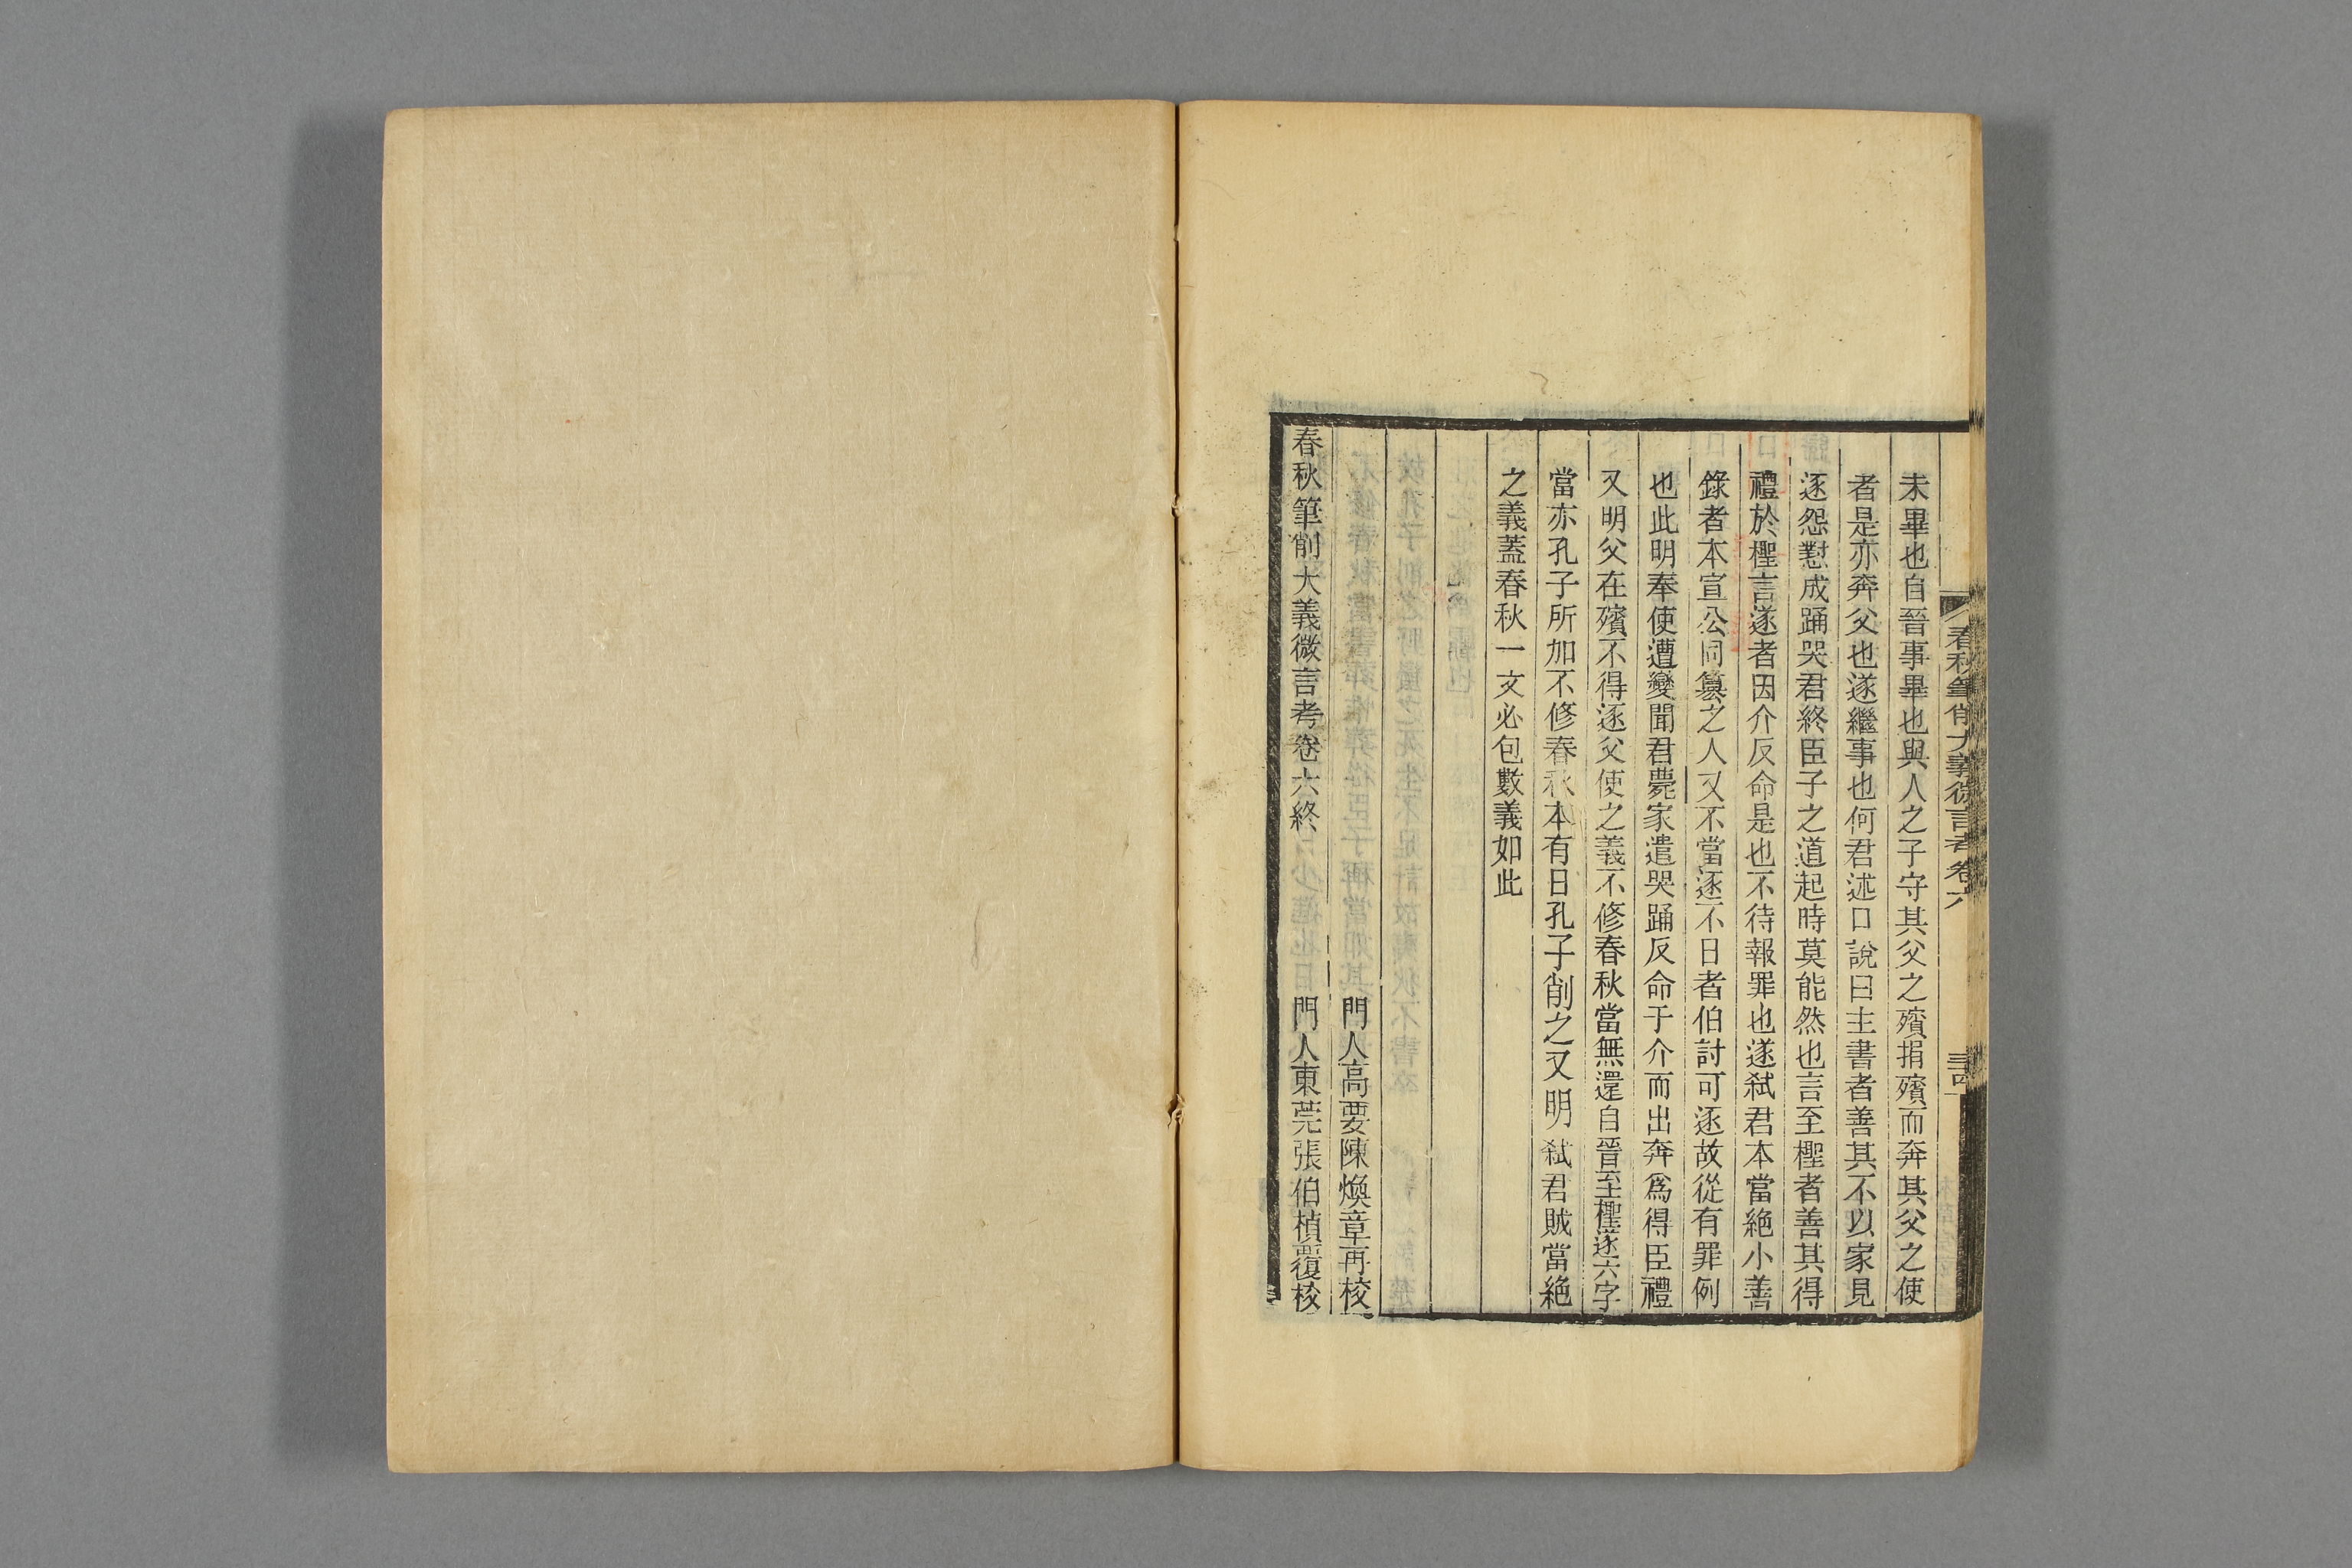 春秋筆削大義微言考卷六
三十四
未畢也自晉事畢也與人之子守其父之殯捐殯而奔其父之使
者是亦奔父也遂繼事也何君述口說曰主書者善其不以家見
逐怨懟成踊哭君終臣子之道起時莫能然也言至檉者善其得
禮於檉言遂者因介反命是也不待報罪也遂弑君本當絕小善
錄者本宣公同篡之人又不當逐不日者伯討可逐故從有罪例
也此明奉使遭變聞君薨家遣哭踊反命于介而出奔爲得臣禮
又明父在殯不得逐父使之義不修春秋當無還自晉至檉遂六字
當亦孔子所加不修春秋本有日孔子削之又明弑君賊當絕
之義蓋春秋一文必包數義如此
門人高要陳煥章再校
春秋筆削大義微言考卷六終
門人東莞張伯楨覆校